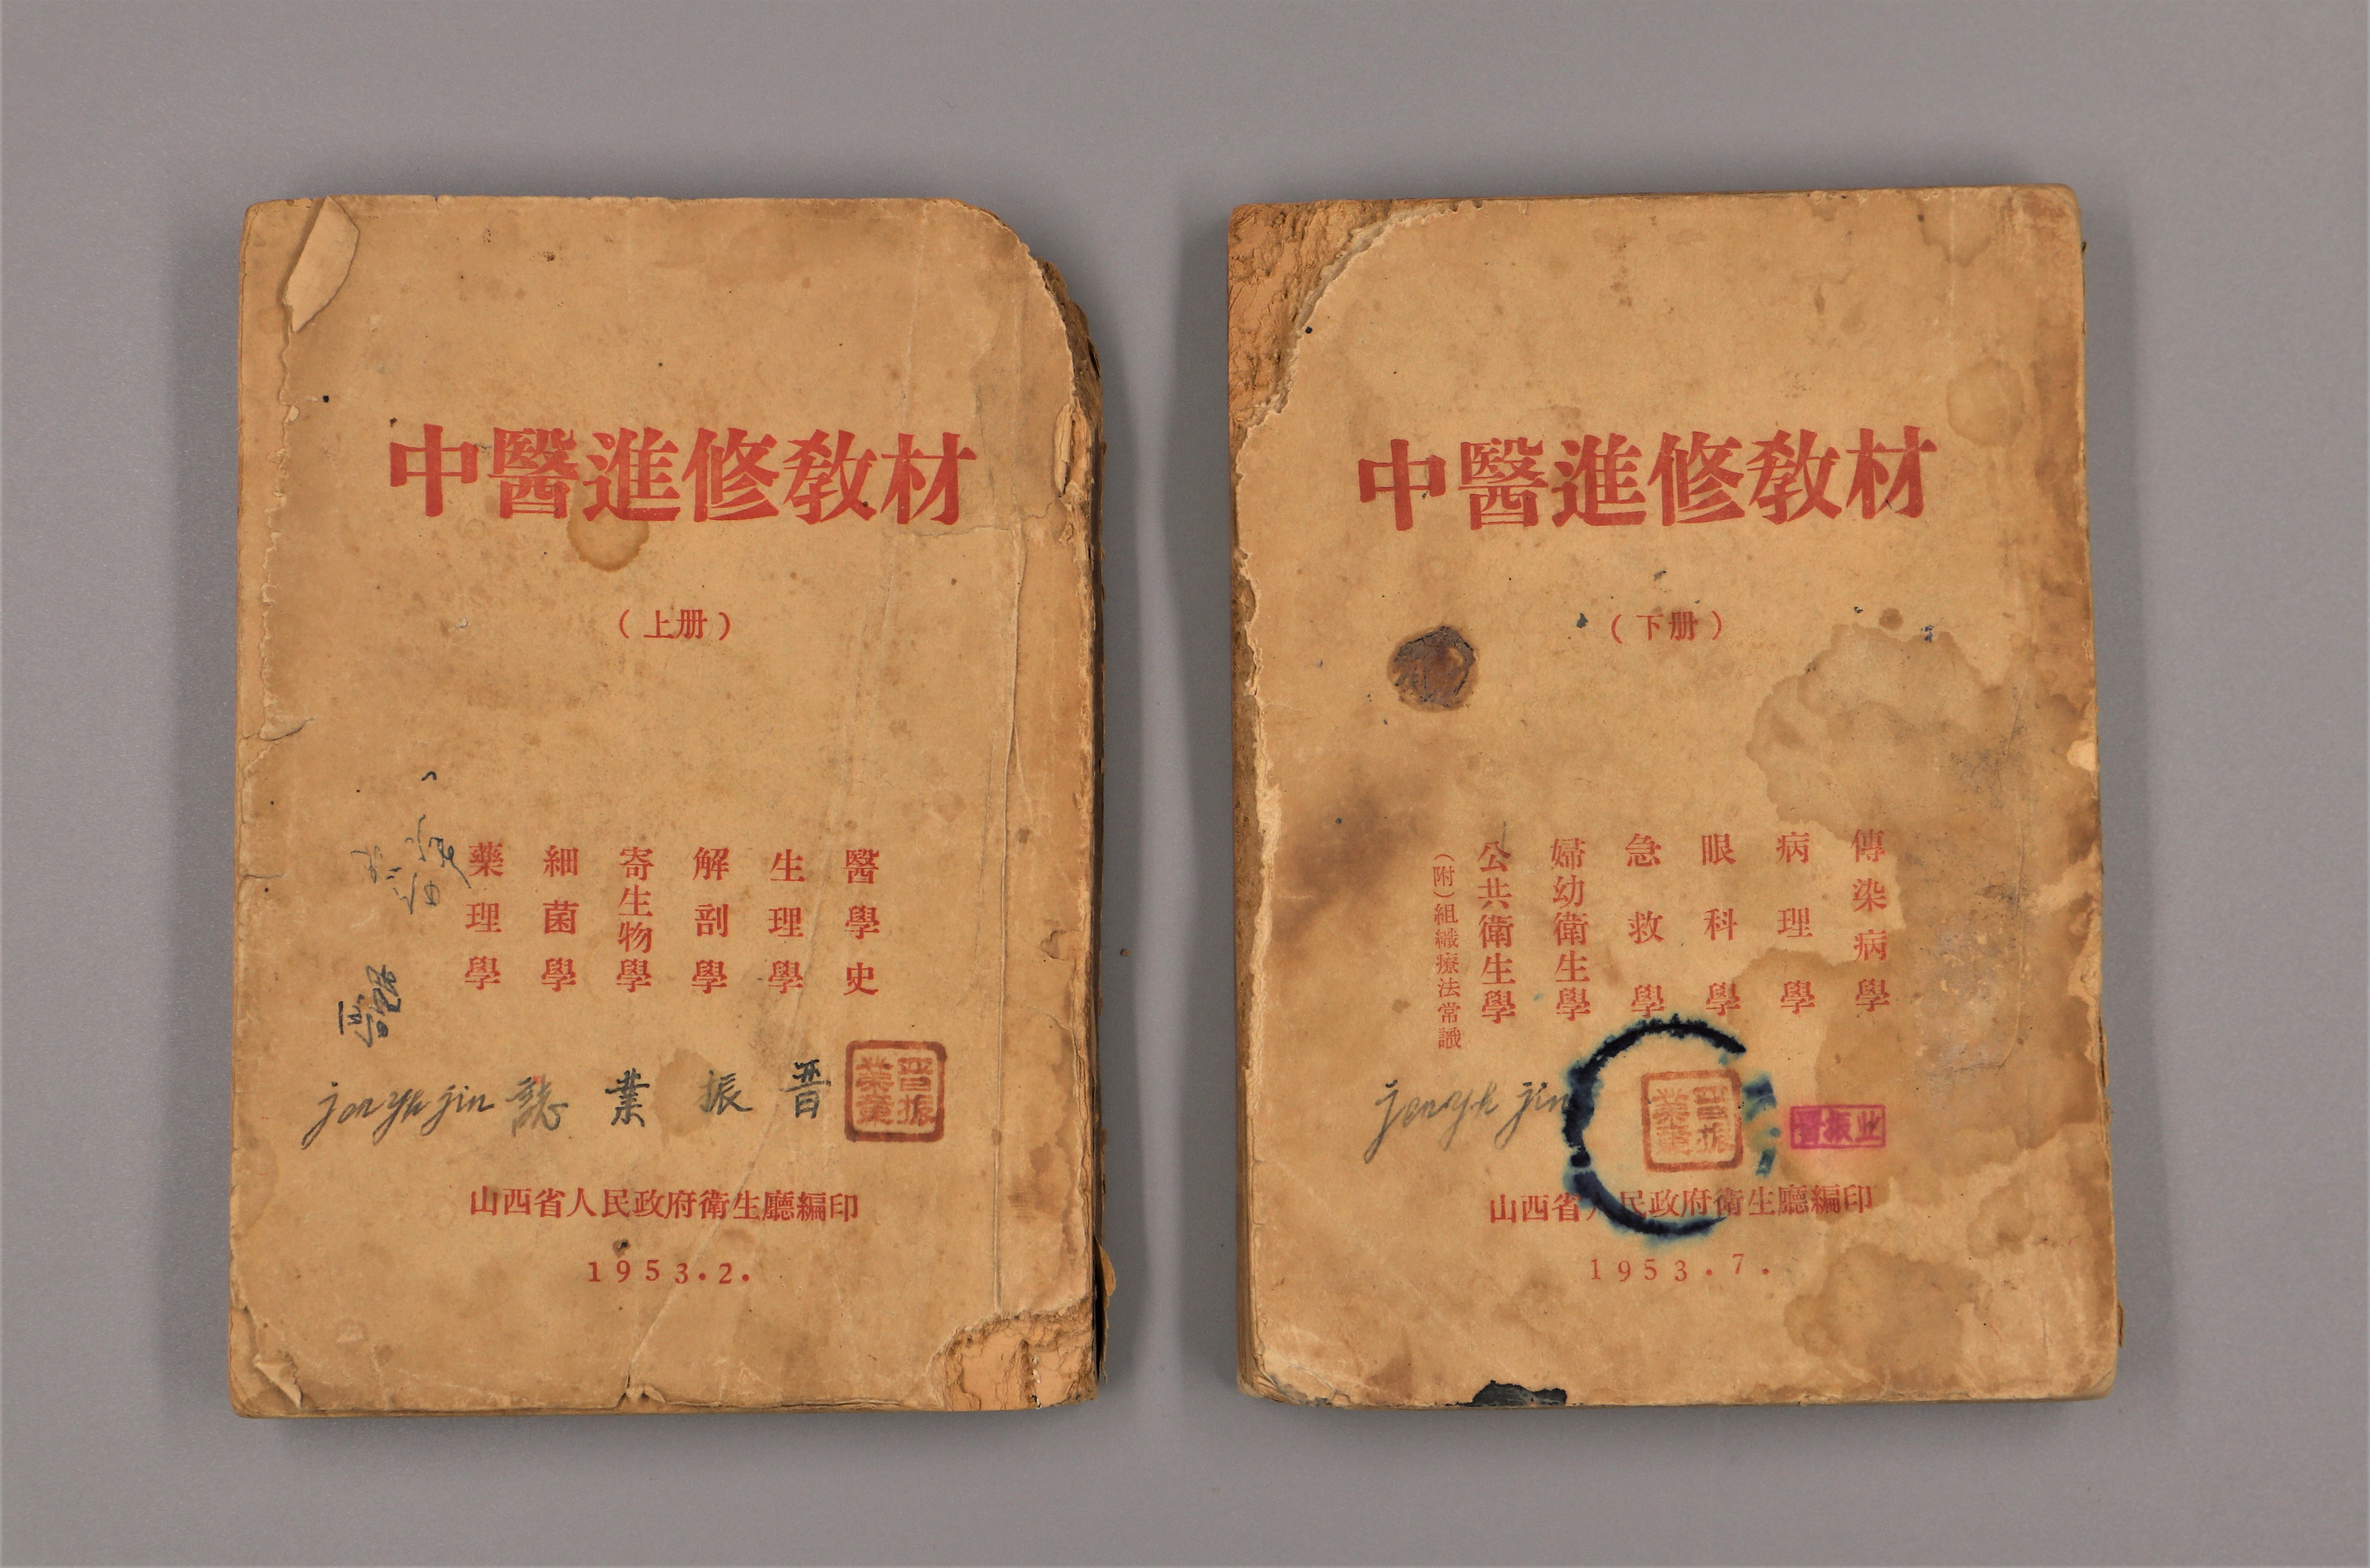 中醫進修教材
(上册)
醫學史
生理學
解剖學
寄生物學
細菌學
藥理學
醫
jon yh jin 誌 業 振 晋
晋振業章
山西省人民政府衛生廳編印
1953.2.
中醫進修教材
(下册)
傳染病學
病理學
眼科學
急救學
婦幼衛生學
公共衛生學
(附)組織療法常識
jon yh jin
晋振業章
晋振业
山西省人民政府衛生廳編印
1953.7.